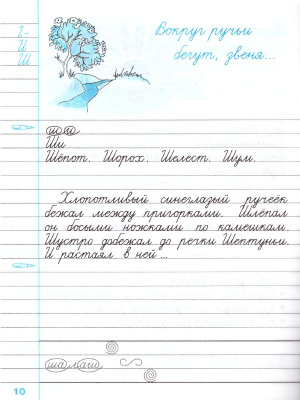 Вокруг ручьи
бегут, звеня...
г-
И
Ш
Ши
Шёпот. Шорох. Шелест. Шум.
Хлопотливый синеглазый ручеёк
бежал между пригорками. Шлёпал
он босыми ножками по камешкам.
Шустро добежал до речки Шептуньи.
И растаял в ней ...
10